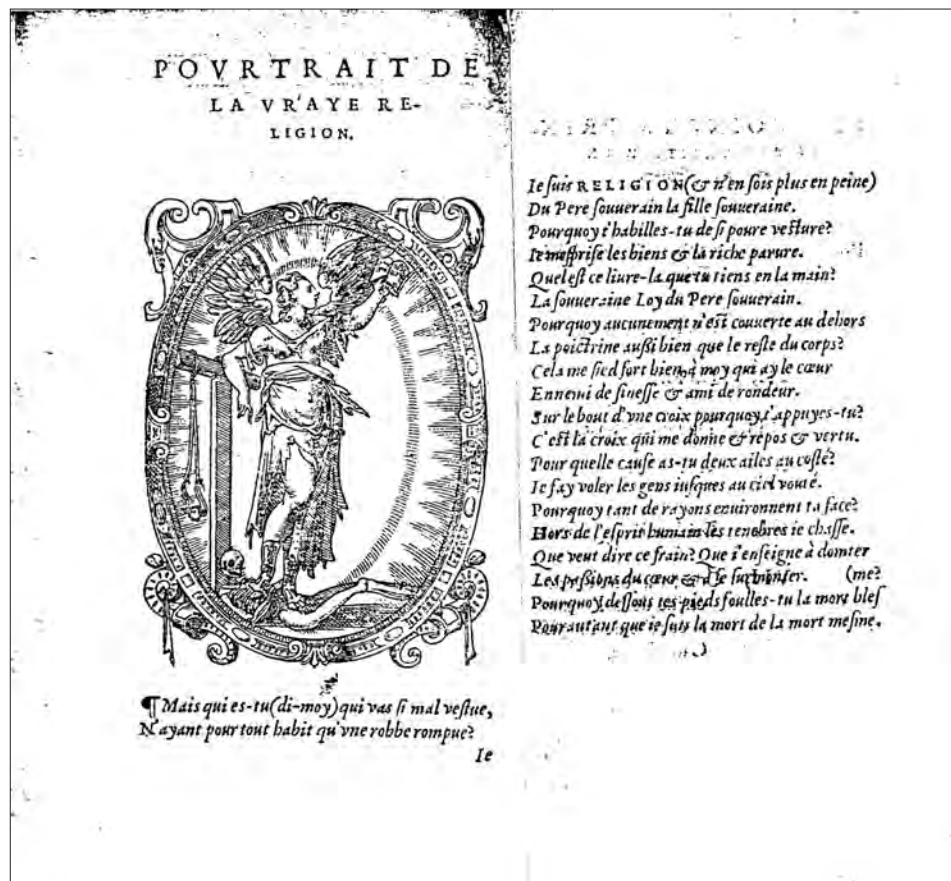 POVRTRAIT DE
LA VRAYE RE-
LIGION.
¶ Mais qui es-tu (di-moy) qui vas ſi mal veſtue,
N'ayant pour tout habit qu'vne robbe rompue?
Ie
Ie ſuis RELIGION (& n'en ſois plus en peine)
Du Pere ſouuerain la fille ſouueraine.
Pourquoy t'habilles-tu de ſi poure veſture?
Ie meſpriſe les biens & la riche parure.
Quel eſt ce liure-la que tu tiens en la main?
La ſouueraine Loy du Pere ſouuerain.
Pourquoy aucunement n'eſt couuerte au dehors
La poictrine außi bien que le reſte du corps?
Cela me ſied fort bien, à moy qui ay le cœur
Ennemi de fineſſe & ami de rondeur.
Sur le bout d'vne croix pourquoy t'appuyes-tu?
C'eſt la croix qui me donne & repos & vertu.
Pour quelle cauſe as-tu deux ailes au coſté?
Ie fay voler les gens iuſques au ciel vouté.
Pourquoy tant de rayons enuironnent ta face?
Hors de l'eſprit humain les tenebres ie chaſſe.
Que veut dire ce frain? Que i'enſeigne à domter
Les paßions du cœur, & à ſe ſurmonter. (me?
Pourquoy deſſous tes pieds foulles-tu la mort bleſ
Pour autant que ie ſuis la mort de la mort meſme.